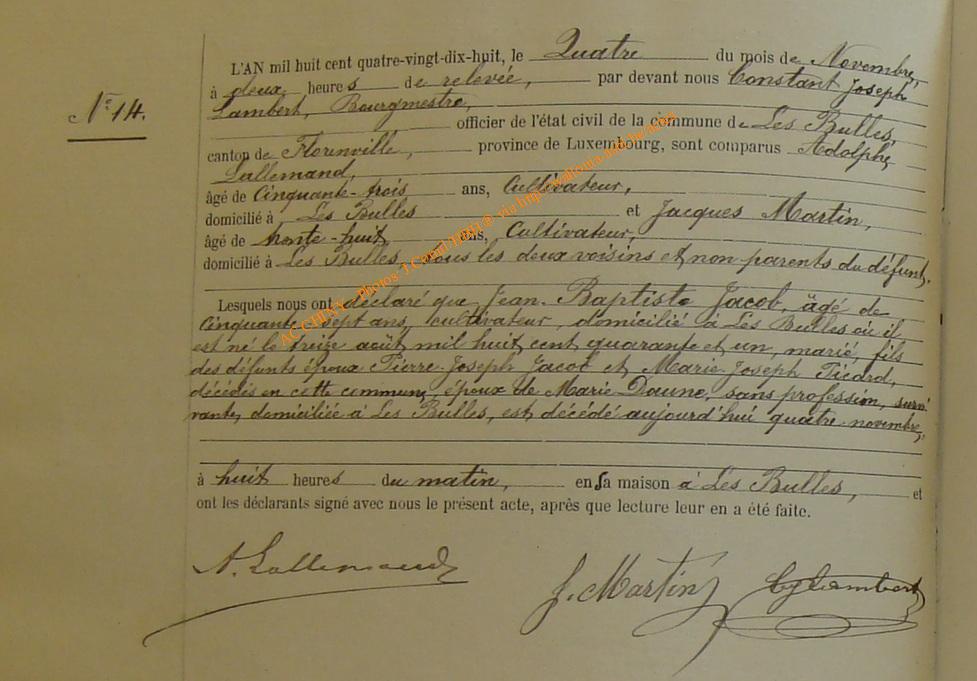 L'AN mil huit cent quatre-vingt-dix-huit, le Quatre du mois de Novembre,
N° 14.
à deux heures de relevée, par devant nous Constant Joseph
Lambert, Bourgmestre,
officier de l'état civil de la commune de Les Bulles,
canton de Florenville, province de Luxembourg, sont comparus Adolphe
Lallemand,
âgé de Cinquante-trois ans, Cultivateur,
domicilié à Les Bulles et Jacques Martin,
âgé de trente-huit ans, Cultivateur,
domicilié à Les Bulles, tous les deux voisins et non parents du défunt.
Lesquels nous ont déclaré que Jean-Baptiste Jacob, âgé de
cinquante sept ans, cultivateur, domicilié à Les Bulles où il
est né le treize août mil huit cent quarante et un, marié, fils
des défunts époux Pierre-Joseph Jacob et Marie-Joseph Picard,
décédés en cette commune, époux de Marie Daune, sans profession, survi
vante, domiciliée à Les Bulles, est décédé aujourd'hui quatre novembre,
à huit heures du matin, en sa maison à Les Bulles, et
ont les déclarants signé avec nous le présent acte, après que lecture leur en a été faite.
A. Lallemand J. Martin CJLambert
AC CHINY - Photos J.C. via http://wallonia-asbl.be